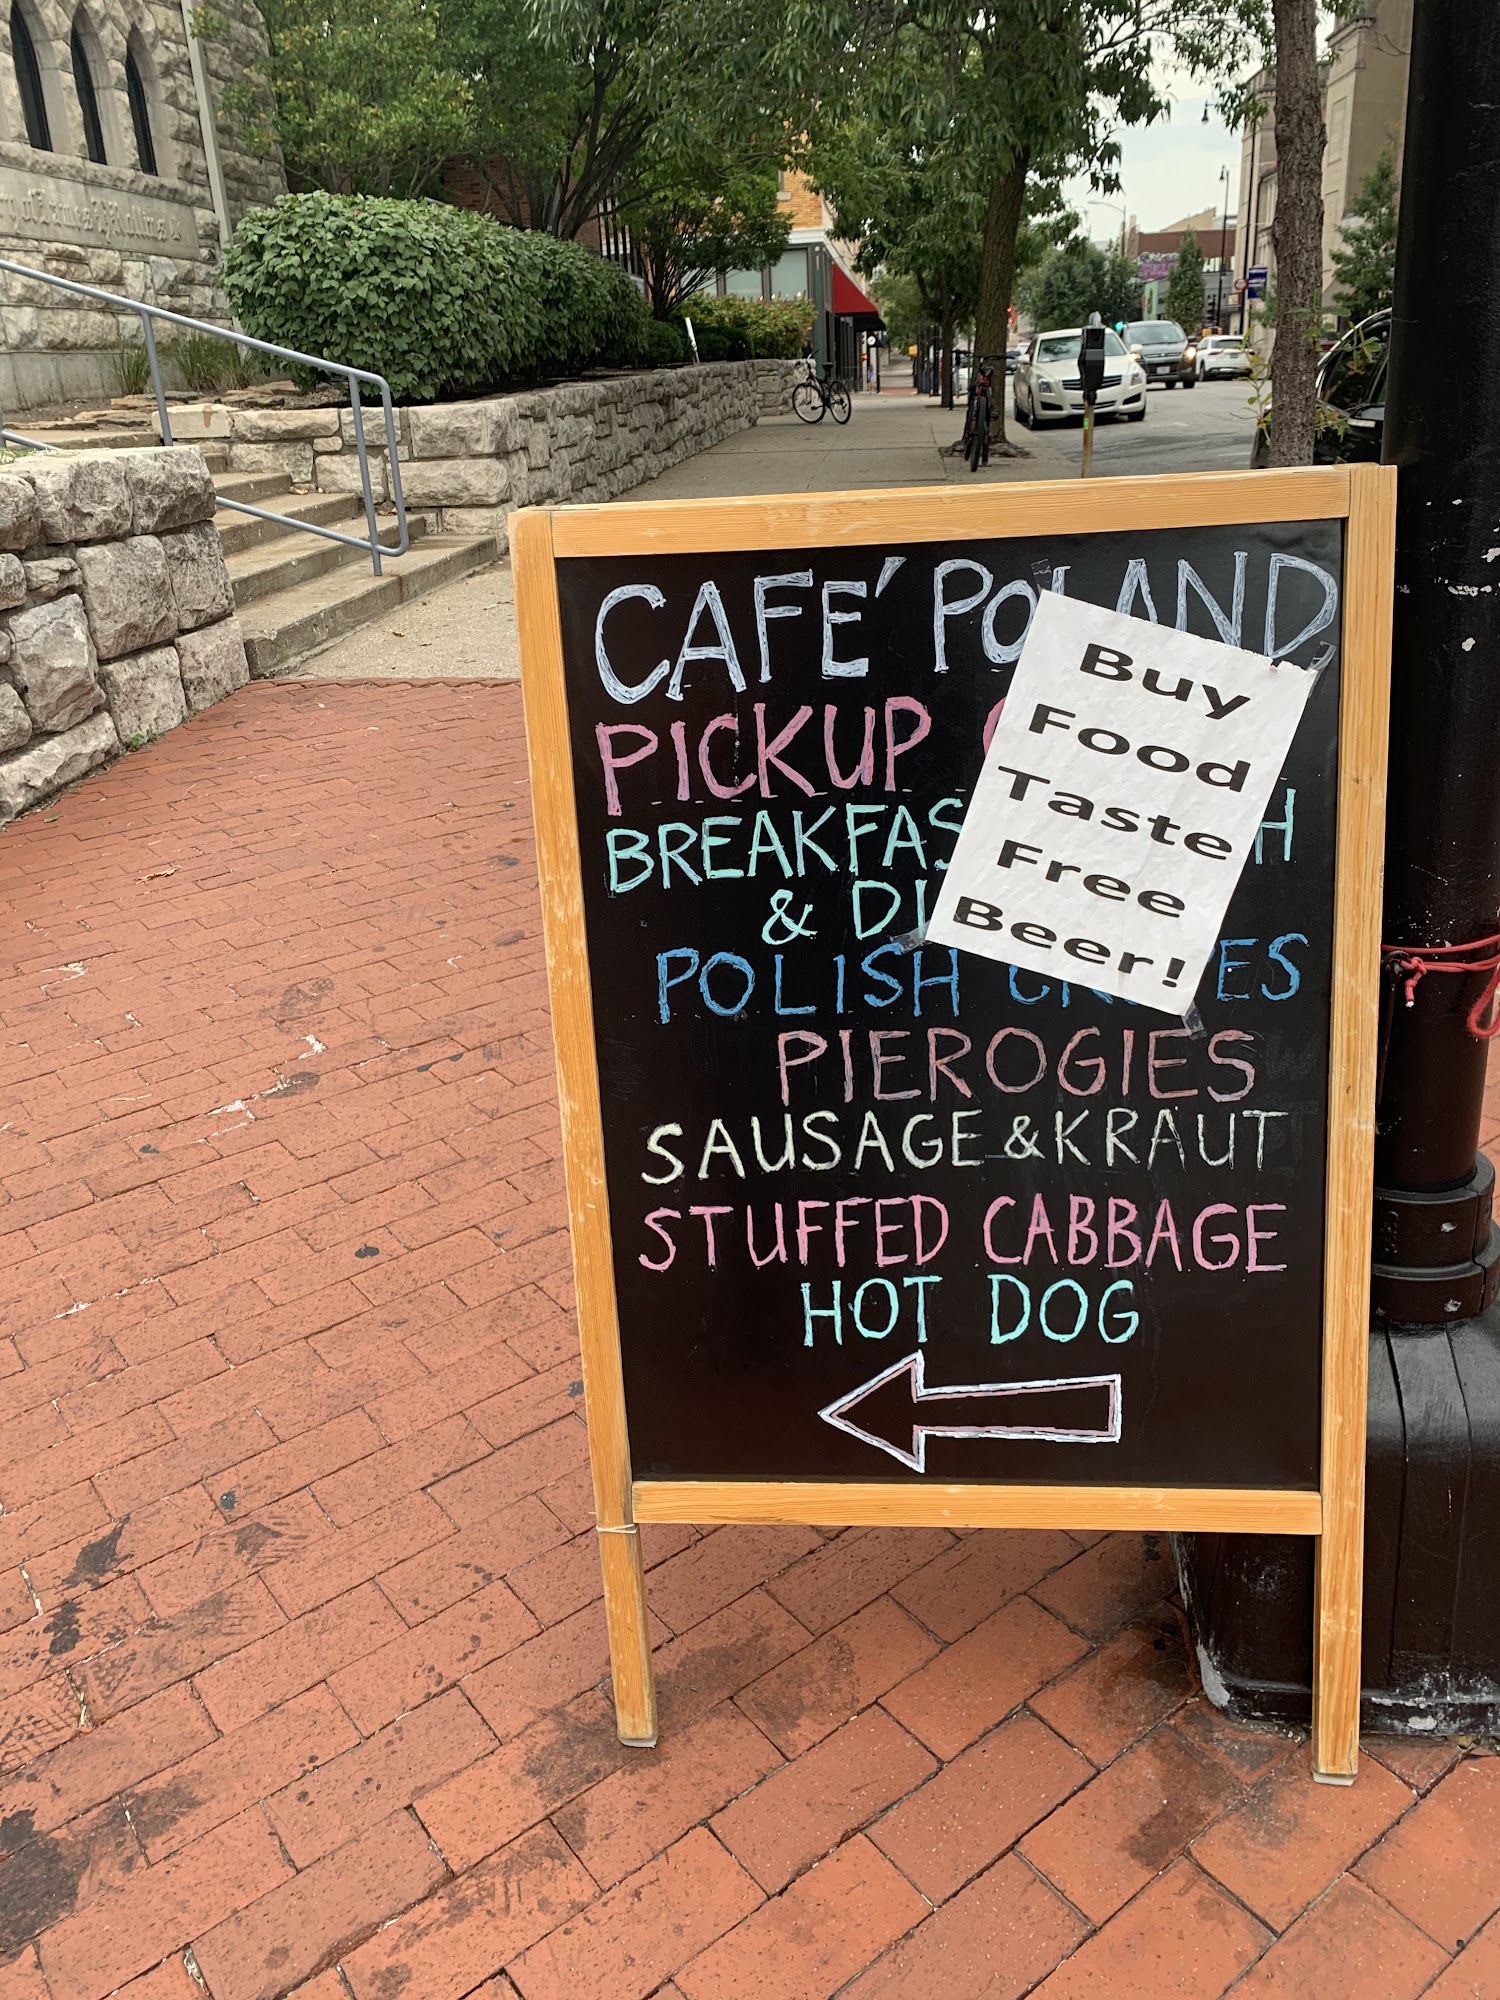 CAFÉ POLAND
PICKUP
& 
POLISH
PIEROGIES
SAUSAGE & KRAUT
STUFFED CABBAGE
HOT DOG
Buy
Food
Taste
Free
Beer!